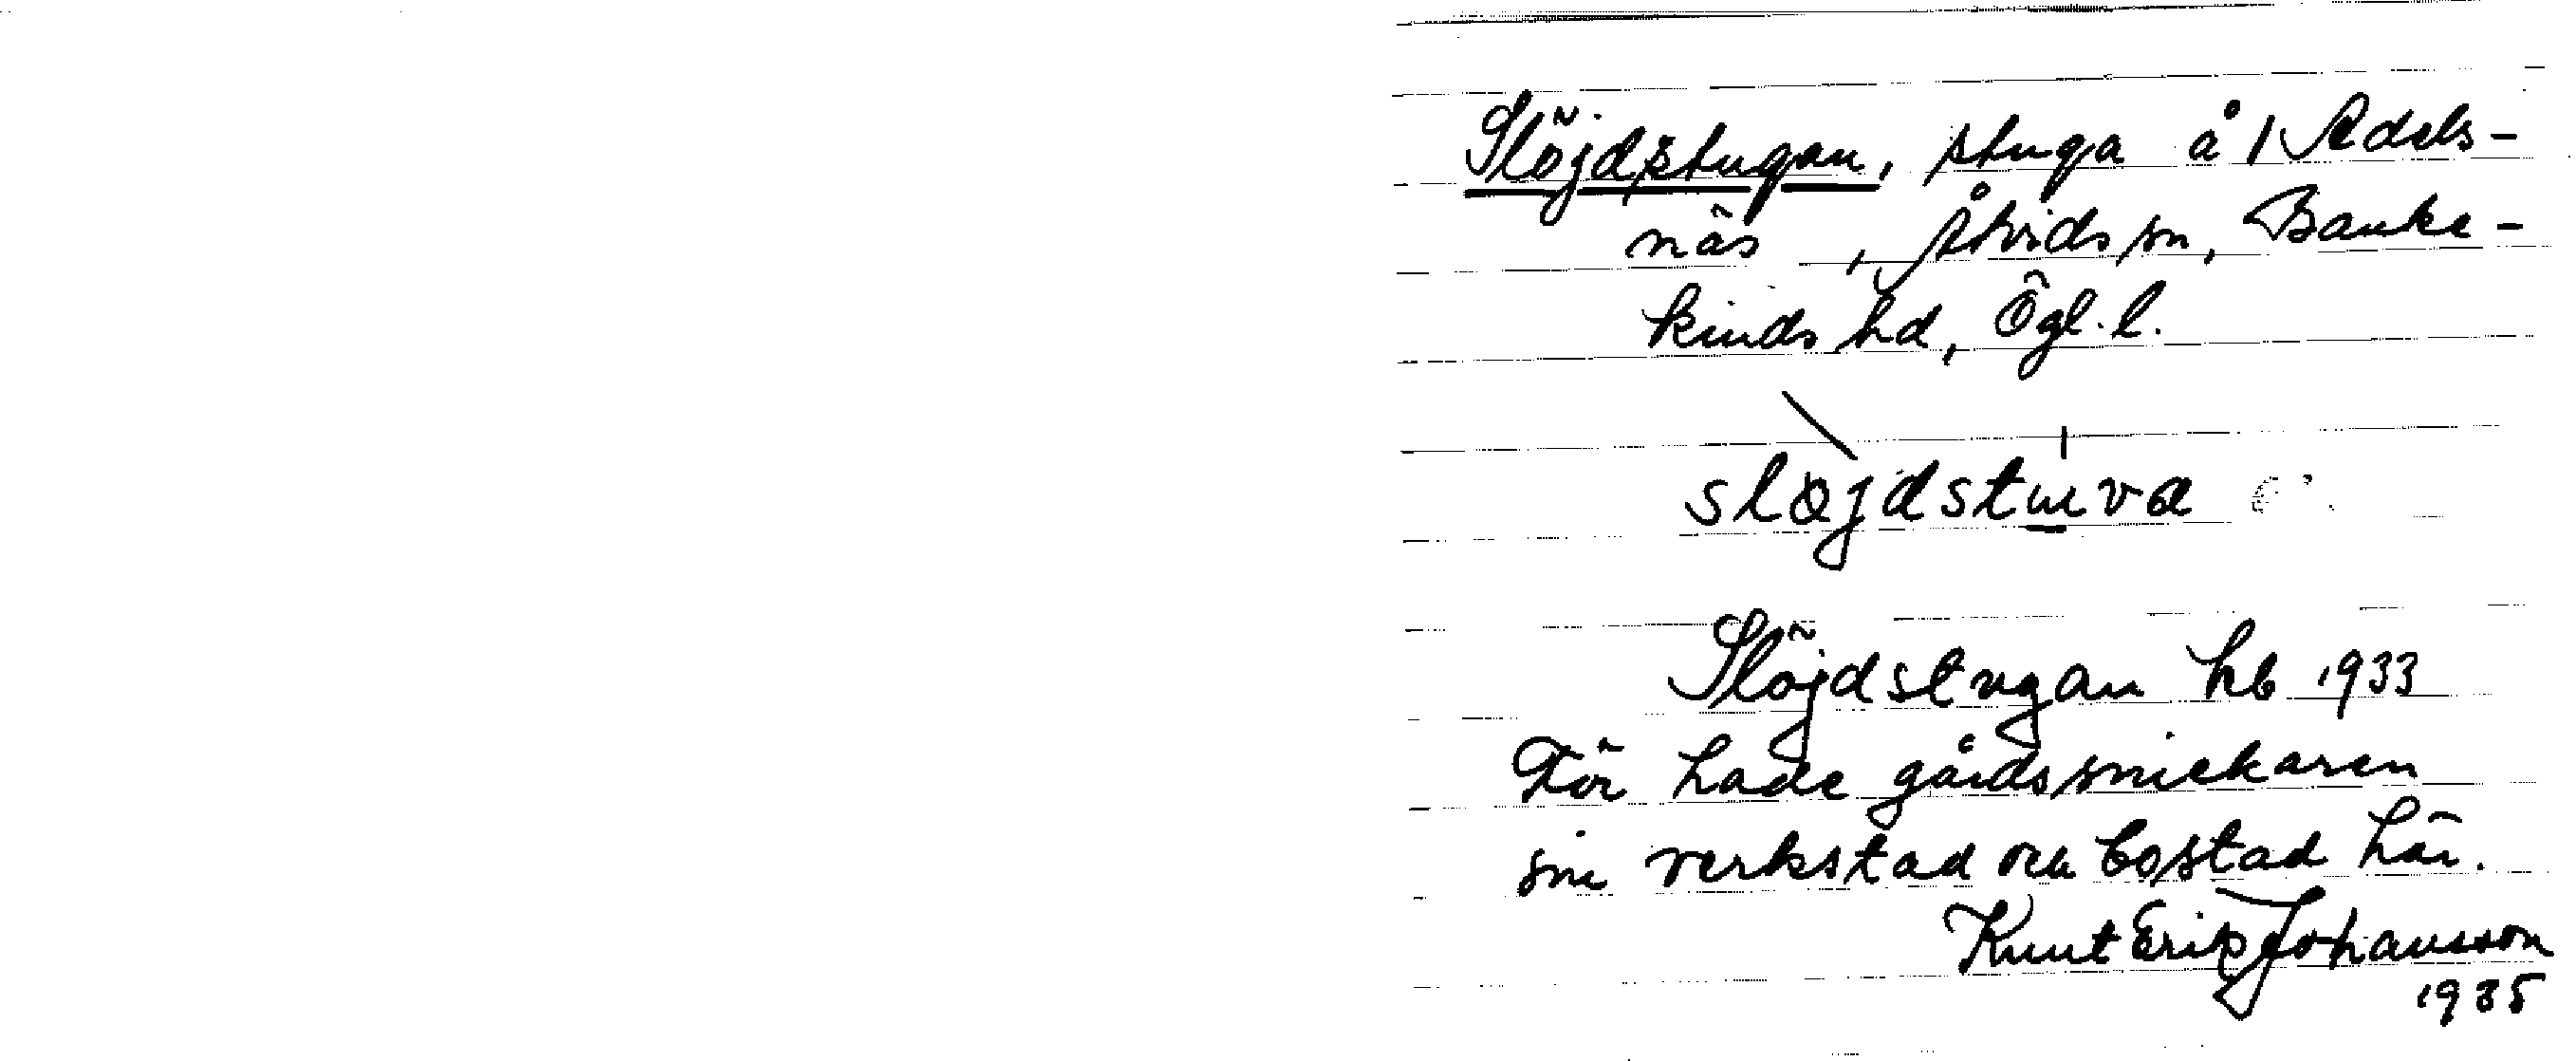 Slöjdstugan, stuga å 1 Adels-
näs, Åtvids sn, Banke-
kinds hd, Ögl. l.
sløjdstuva
Slöjdstugan hb 1933
För hade gårdssnickaren
sin verkstad och bostad här.
Knut Erik Johansson
1935